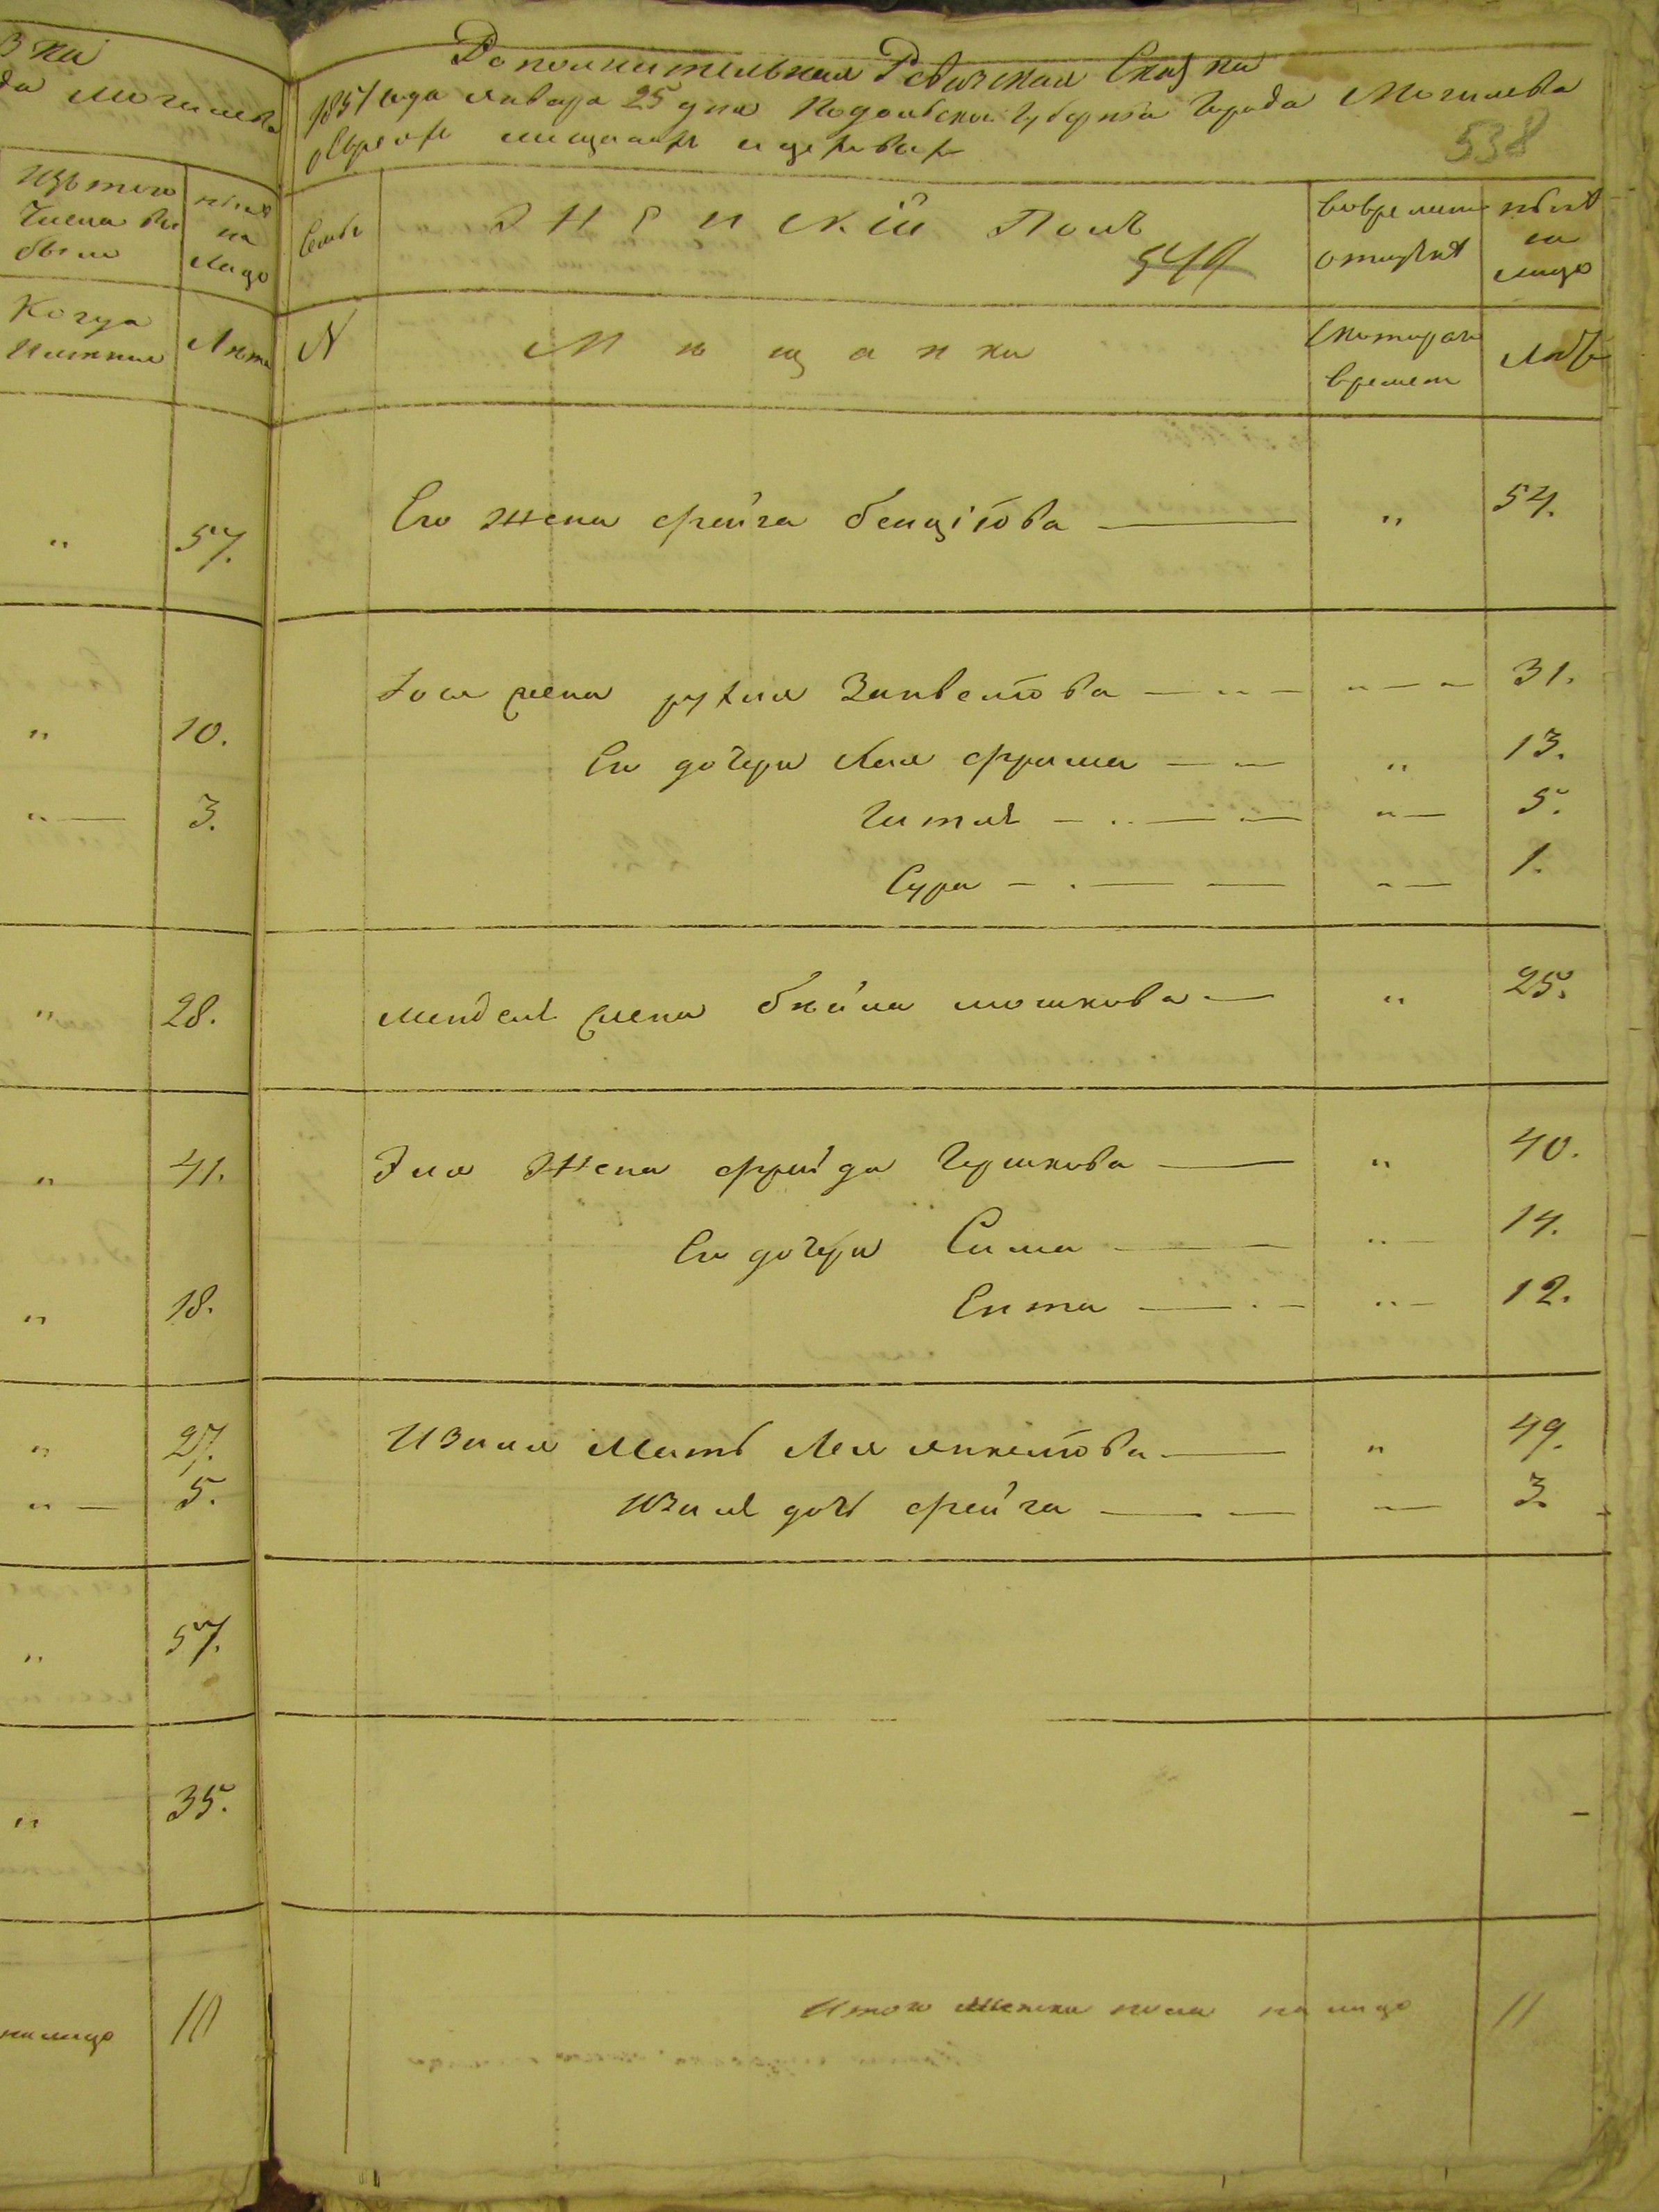 зка
да Могилева
Изъ того числа вы было
нынѣ на лицо
Когда именно
Лѣта
" 57.
" 10.
" — 3.
" 28.
" 41.
" 18.
" 27.
" — 5.
" 57.
" 35.
на лицо 10
Дополнительная Ревизская Сказка
1851 года января 25 дня Подольской Губерніи Города Могилева
о Евреяхъ мещанахъ
538
Семьи
Женскій Полъ
544
во временной отлучкѣ
нынѣ на лицо
N
Мѣщанки
Съ котораго времени
Лѣта
Его Жена фейга бенціонова — " 54.
жена рухля — 31.
Ея дочери Хая фрима — " 13.
Гитля — " — 5.
Сура — " — 1.
мендель жена бейла мошкова — " 25.
Эля Жена фрейда Гершкова — " 40.
Ея дочери Сима — " — 14.
Ента — " — 12.
Мать Лея янкелiова — " 49.
дочь фейга — 3.
Итого женска пола на лицо 11